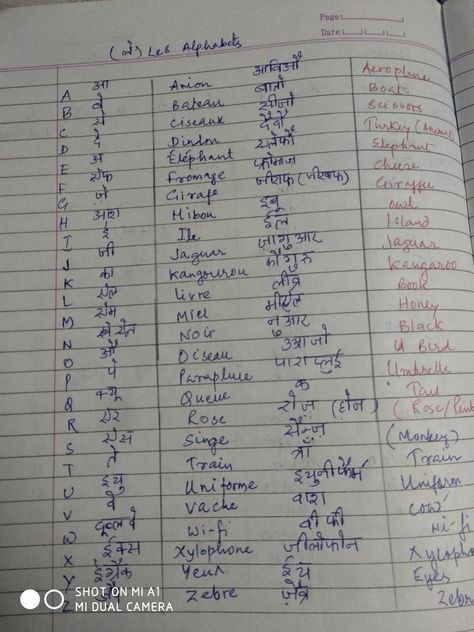 Page:
Date:
(ले) Les Alphabets
A आ Avion आविऔं Aeroplane
B बे Bateau बातो Boat
C से Ciseaux सीज़ो Scissors
D दे Dindon Turkey
E अ Éléphant Elephant
F एफ Fromage फ्रोमाज Cheese
G जे Girafe जीराफ
H आश Hibou इबू owl
I ई Ile ईल Island
J जी Jaguar जागुआर Jaguar
K का Kangourou कौंगुरु Kangaroo
L एल Livre लीव्र Book
M एम Miel मीएल Honey
N Noir नुआर Black
O औ Oiseau उआजो Bird
P पे Parapluie पाराप्लुई Umbrella
Q क्यू Queue क Tail
R एर Rose रोज़ (होज़) (Rose/
S एस Singe सैन्ज़ (Monkey)
T ते Train त्राँ Train
U इयु Uniforme इयुनीफौर्म Uniform
V वे Vache वाश Cow
W दूब्ल वे Wi-fi वी फी Wi-fi
X ईक्स Xylophone जीलोफोन Xylopho
Y ईग्रैक Yeux ईय Eyes
Z Zebre ज़ेब्र Zebr
SHOT ON MI A1
MI DUAL CAMERA